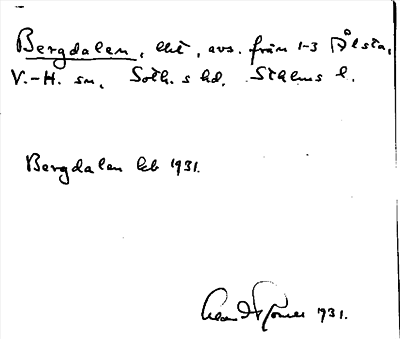 Bergdalen, lht, avs. från 1-3 Ålsta,
V.-H. sn, Soth. s hd. Sthlms l.
Bergdalen lib 1931.
1931.